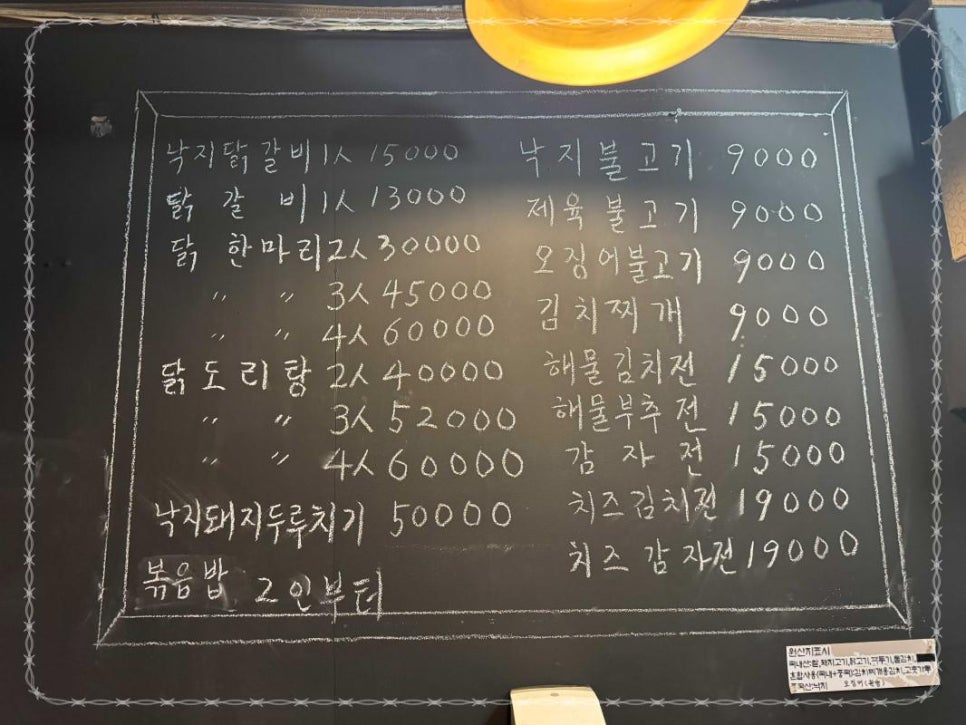 낙지닭갈비 1人 15000
닭 갈 비 1人 13000
닭 한마리 2人 30000
〃 〃 3人 45000
〃 〃 4人 60000
닭도리탕 2人 40000
〃 〃 3人 52000
〃 〃 4人 60000
낙지돼지두루치기 50000
볶음밥 2인부터
낙지불고기 9000
제육불고기 9000
오징어불고기 9000
김치찌개 9000
해물김치전 15000
해물부추전 15000
감자전 15000
치즈김치전 19000
치즈감자전 19000
원산지표시
국내산:쌀,돼지고기,닭고기,
혼합사용(국내+중국):김치찌개용김치,고춧가루
중국산:낙지